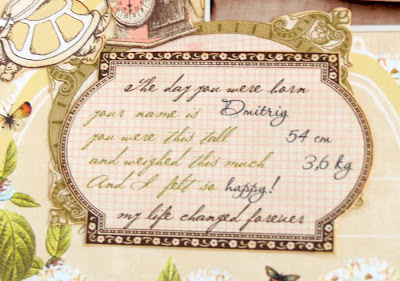 The day you were born
your name is Dmitriy
you were this tall 54 cm
and weighed this much 3,6 kg
And I felt so happy!
my life changed forever